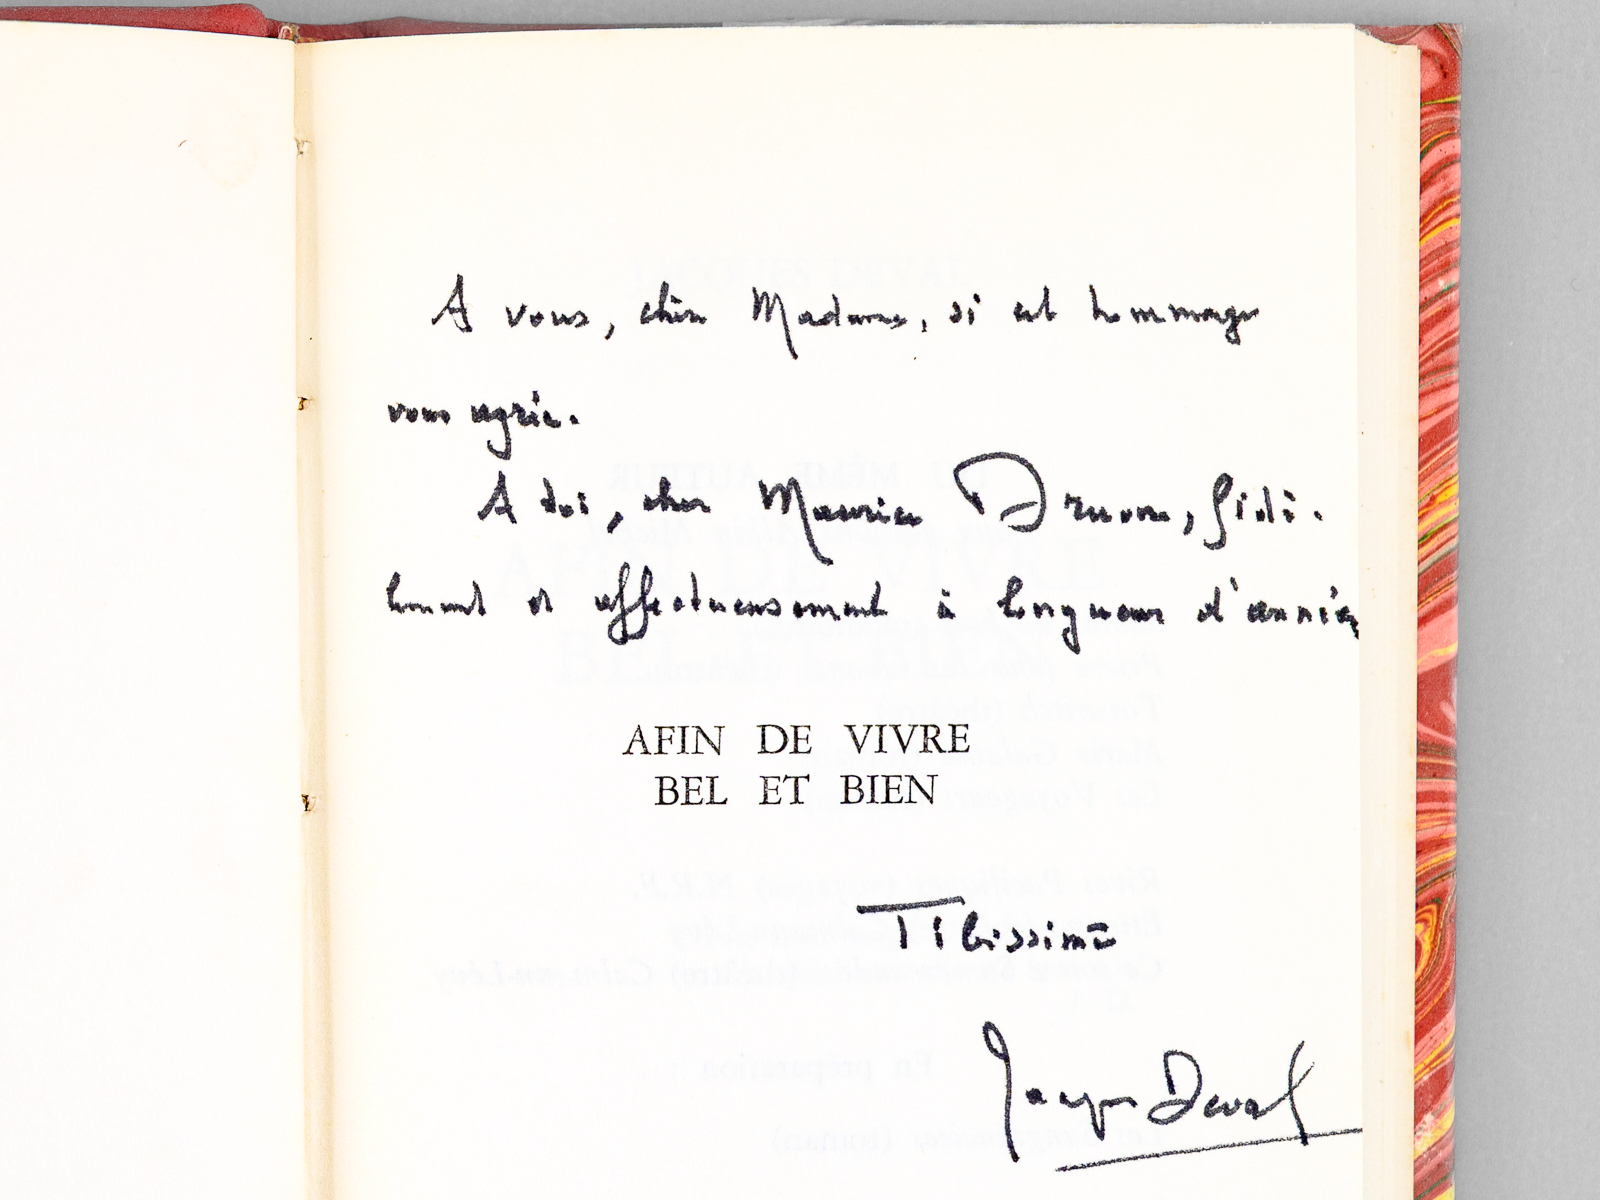 A vous, chère Madame, si cet hommage
vous agrée.
A toi, cher Maurice Druon, fidè-
lement et affectueusement à longueur d'année,
AFIN DE VIVRE
BEL ET BIEN
Tibissime
Jacques Deval